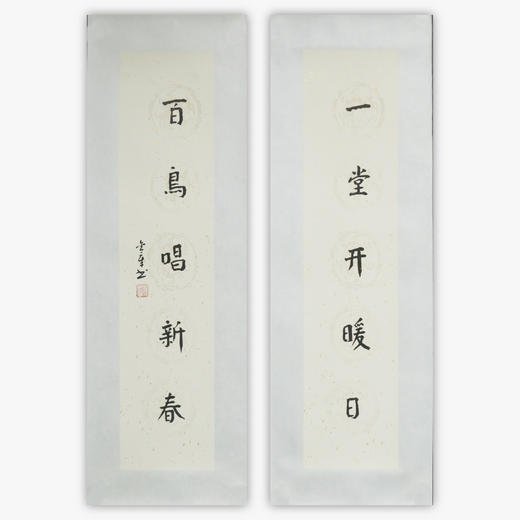 一堂开暖日
百鳥唱新春